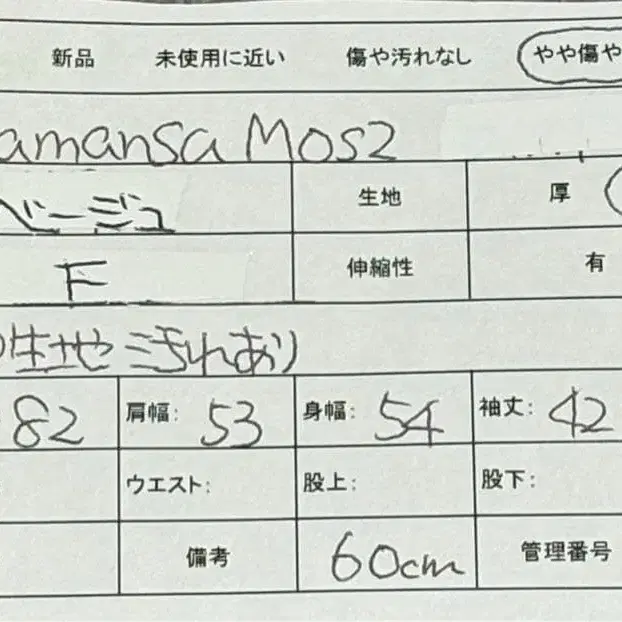 新品 未使用に近い 傷や汚れなし やや傷や
amansa Mos2
ベージュ 生地 厚
F 伸縮性 有
生地 汚れあり
82 肩幅: 53 身幅: 54 袖丈: 42
ウエスト: 股上: 股下:
備考 60cm 管理番号